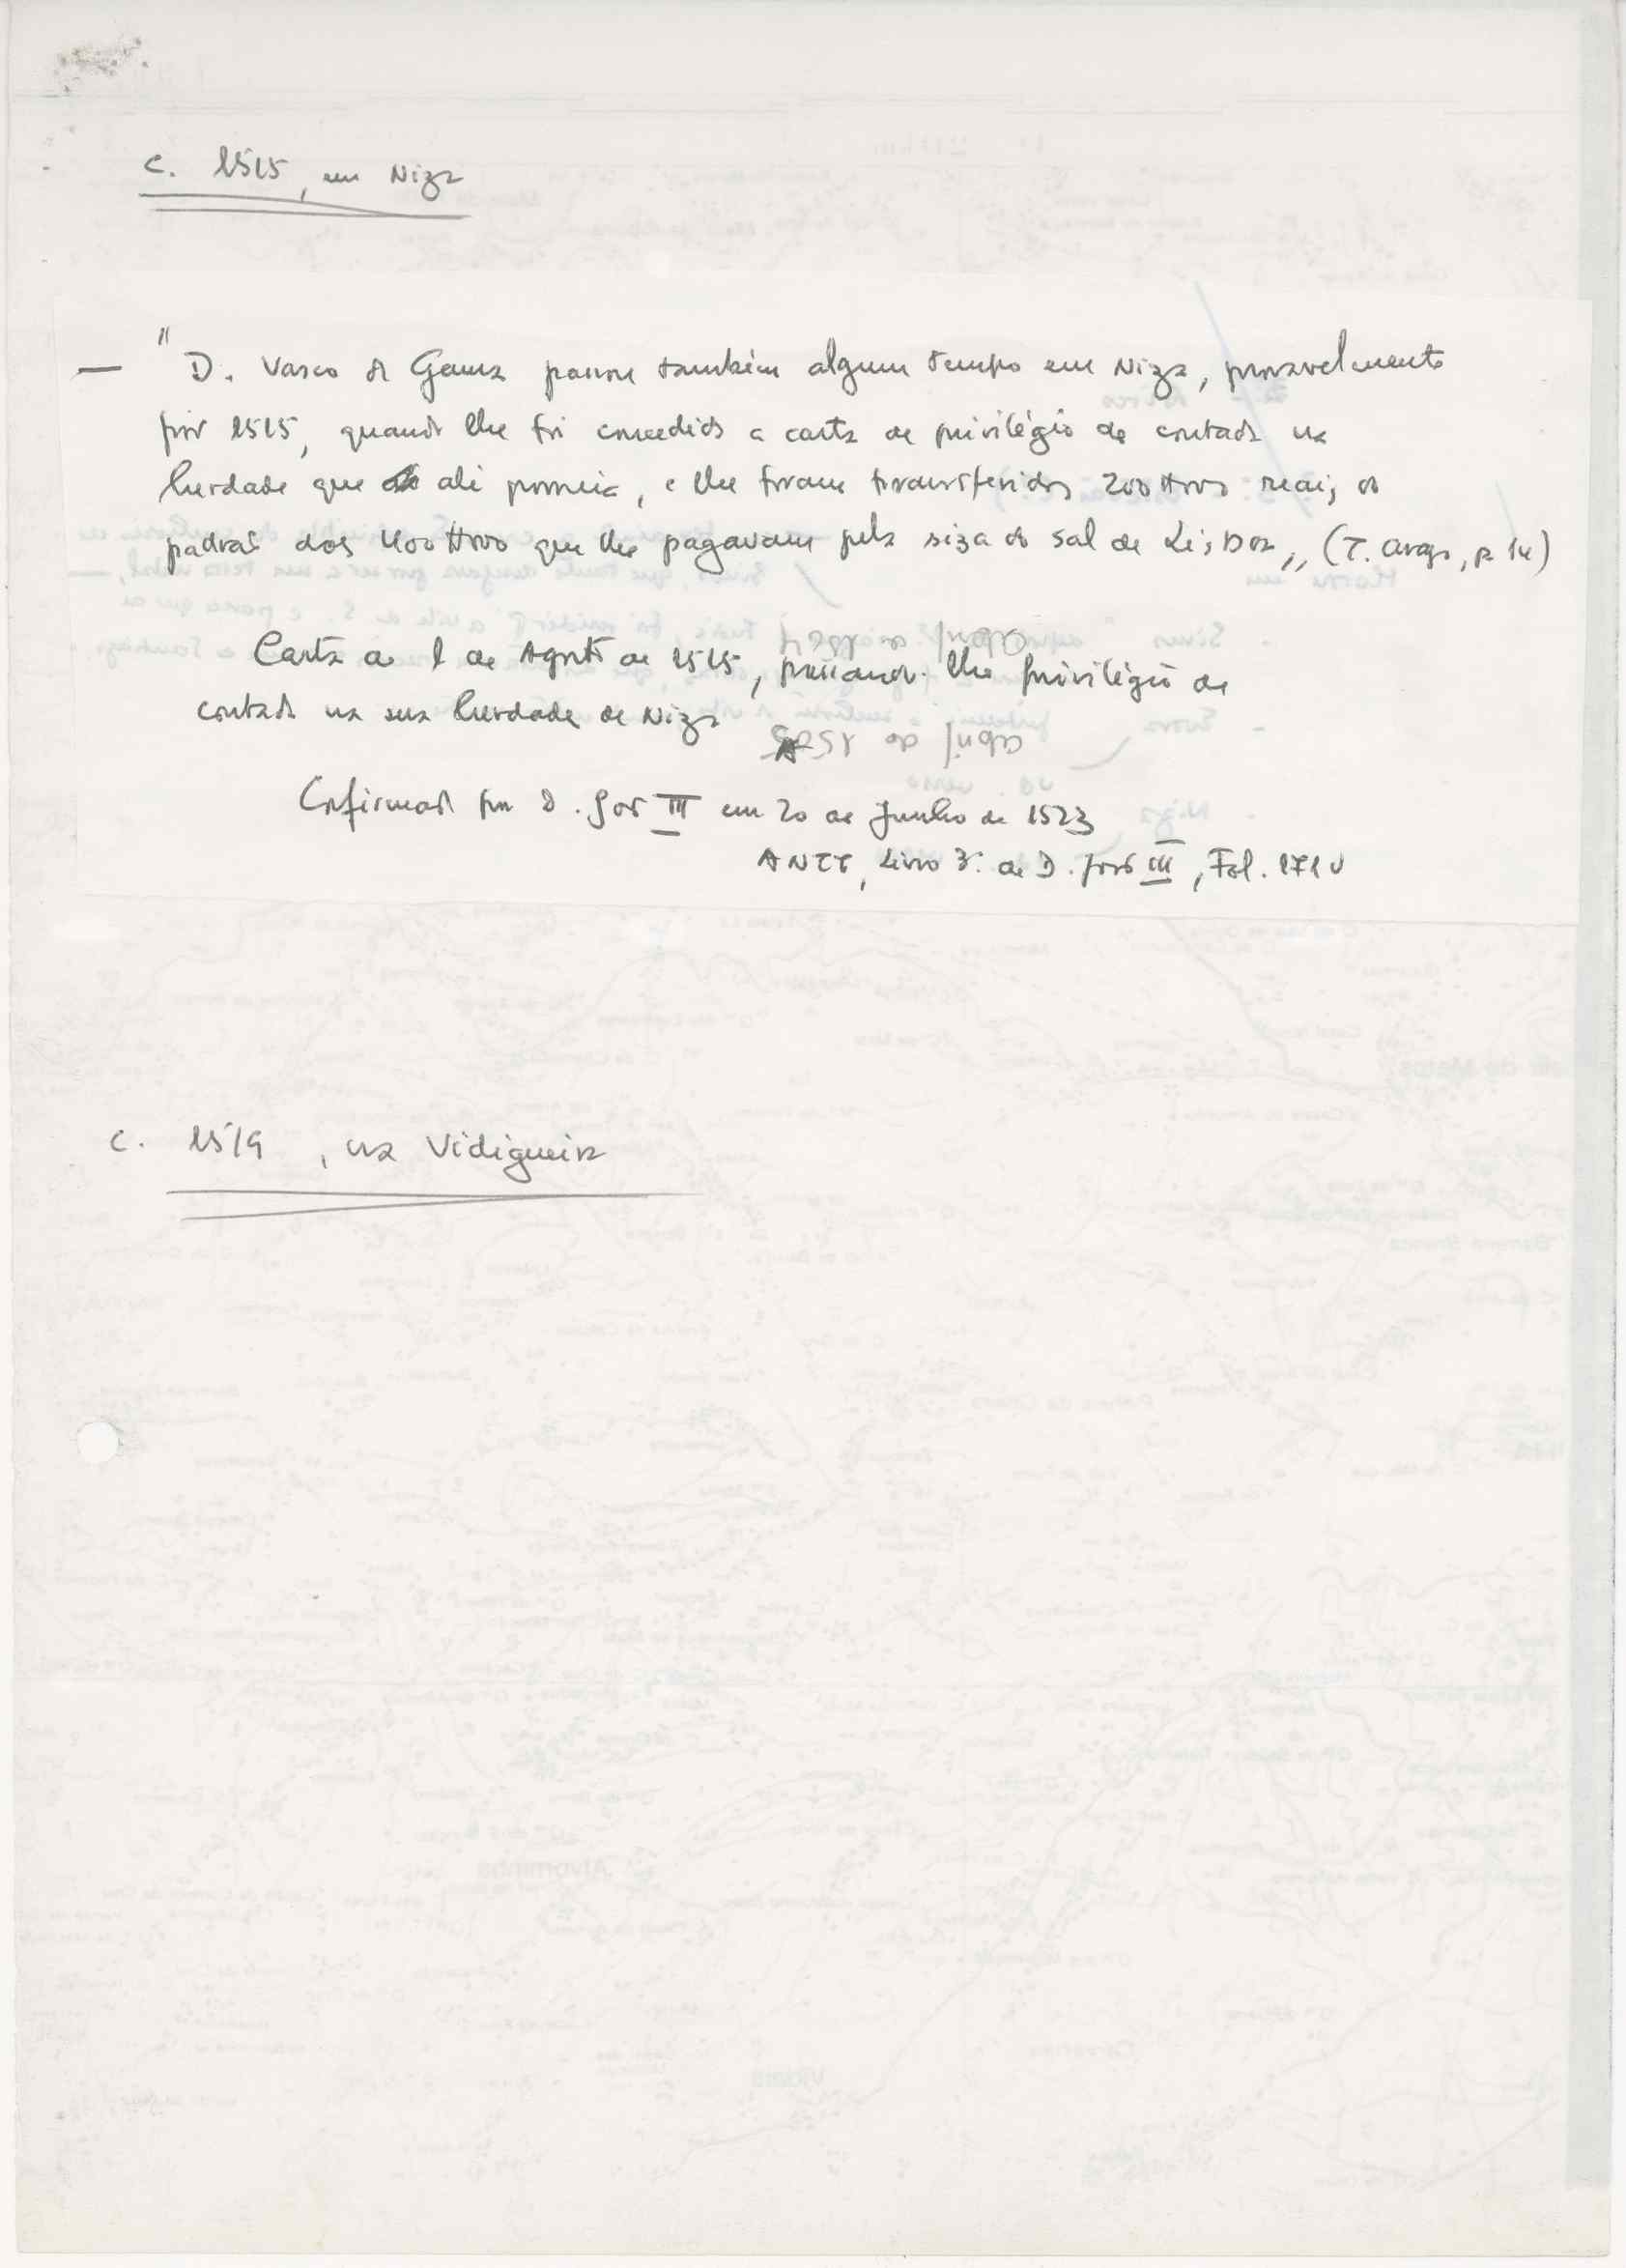 c. 1515, em Niza
— "D. Vasco da Gama passou também algum tempo em Niza, provavelmente
por 1515, quando lhe foi concedido a carta de privilégio de coutada na
herdade que ali possuia, e lhe foram transferidos 200 000 reais do
padrão dos 400 000 que lhe pagavam pela siza do sal de Lisboa,, (T. Aragão, p. 14)
Carta de 1 de Agosto de 1515, passando-lhe privilégio de
coutada na sua herdade de Niza
Confirmada por D. João III em 20 de Junho de 1523
ANTT, Livro 3º de D. João III, Fol. 171 v
c. 1519, na Vidigueira